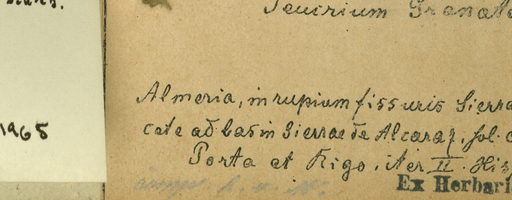 Teucrium Granate
Almeria, in rupium fissuris Sierra
cete ad basin Sierrae de Alcaraz, sol. c
Porta et Rigo, iter II. His
Ex Herbari
1965